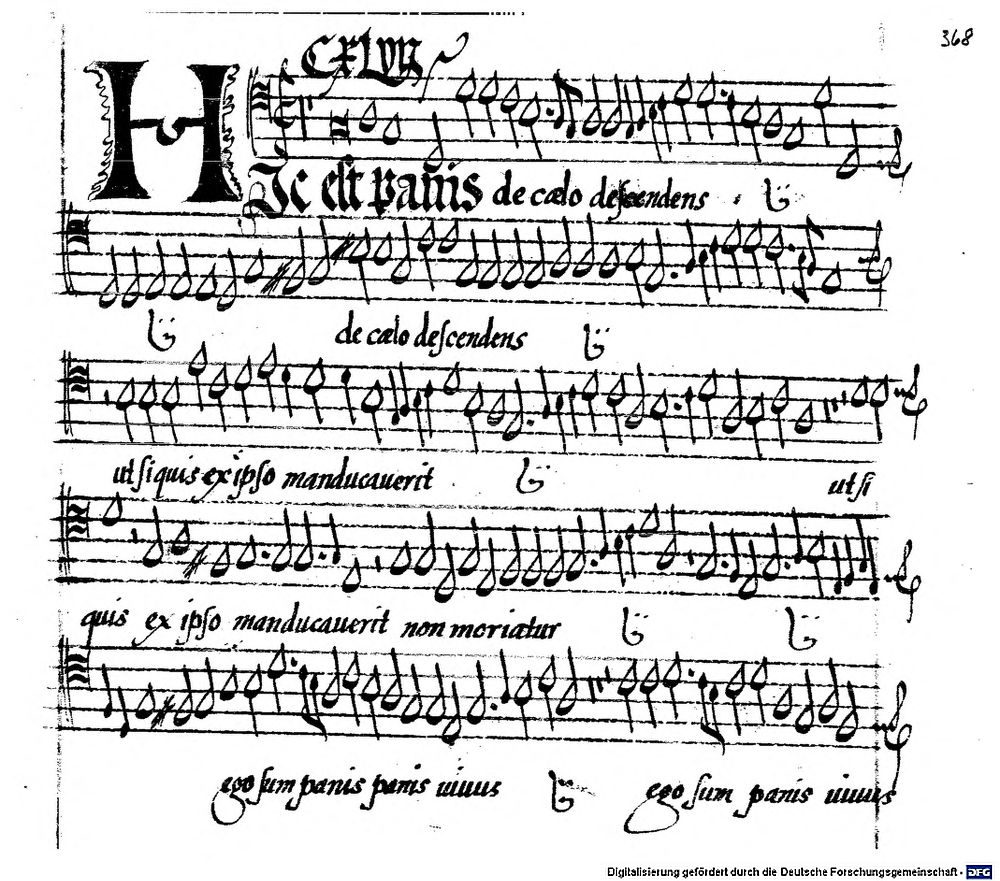 368
CXLVII
HIc est panis de cælo descendens
de cælo descendens
ut si quis ex ipso manducauerit ut si
quis ex ipso manducauerit non moriatur
ego sum panis panis uiuus ego sum panis uiuus
Digitalisierung gefördert durch die Deutsche Forschungsgemeinschaft - DFG